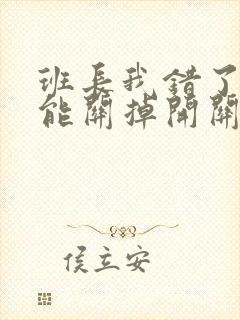 班长我错了
能關掉開關
侯立安